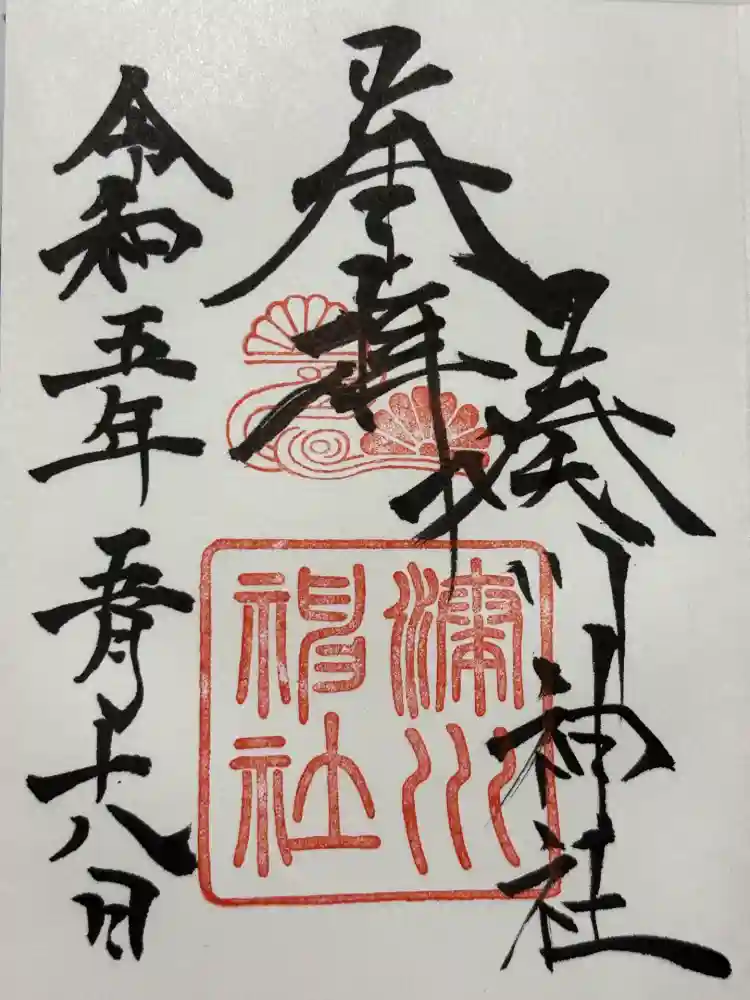 湊川神社
湊川
神社
令和五年五月十八日